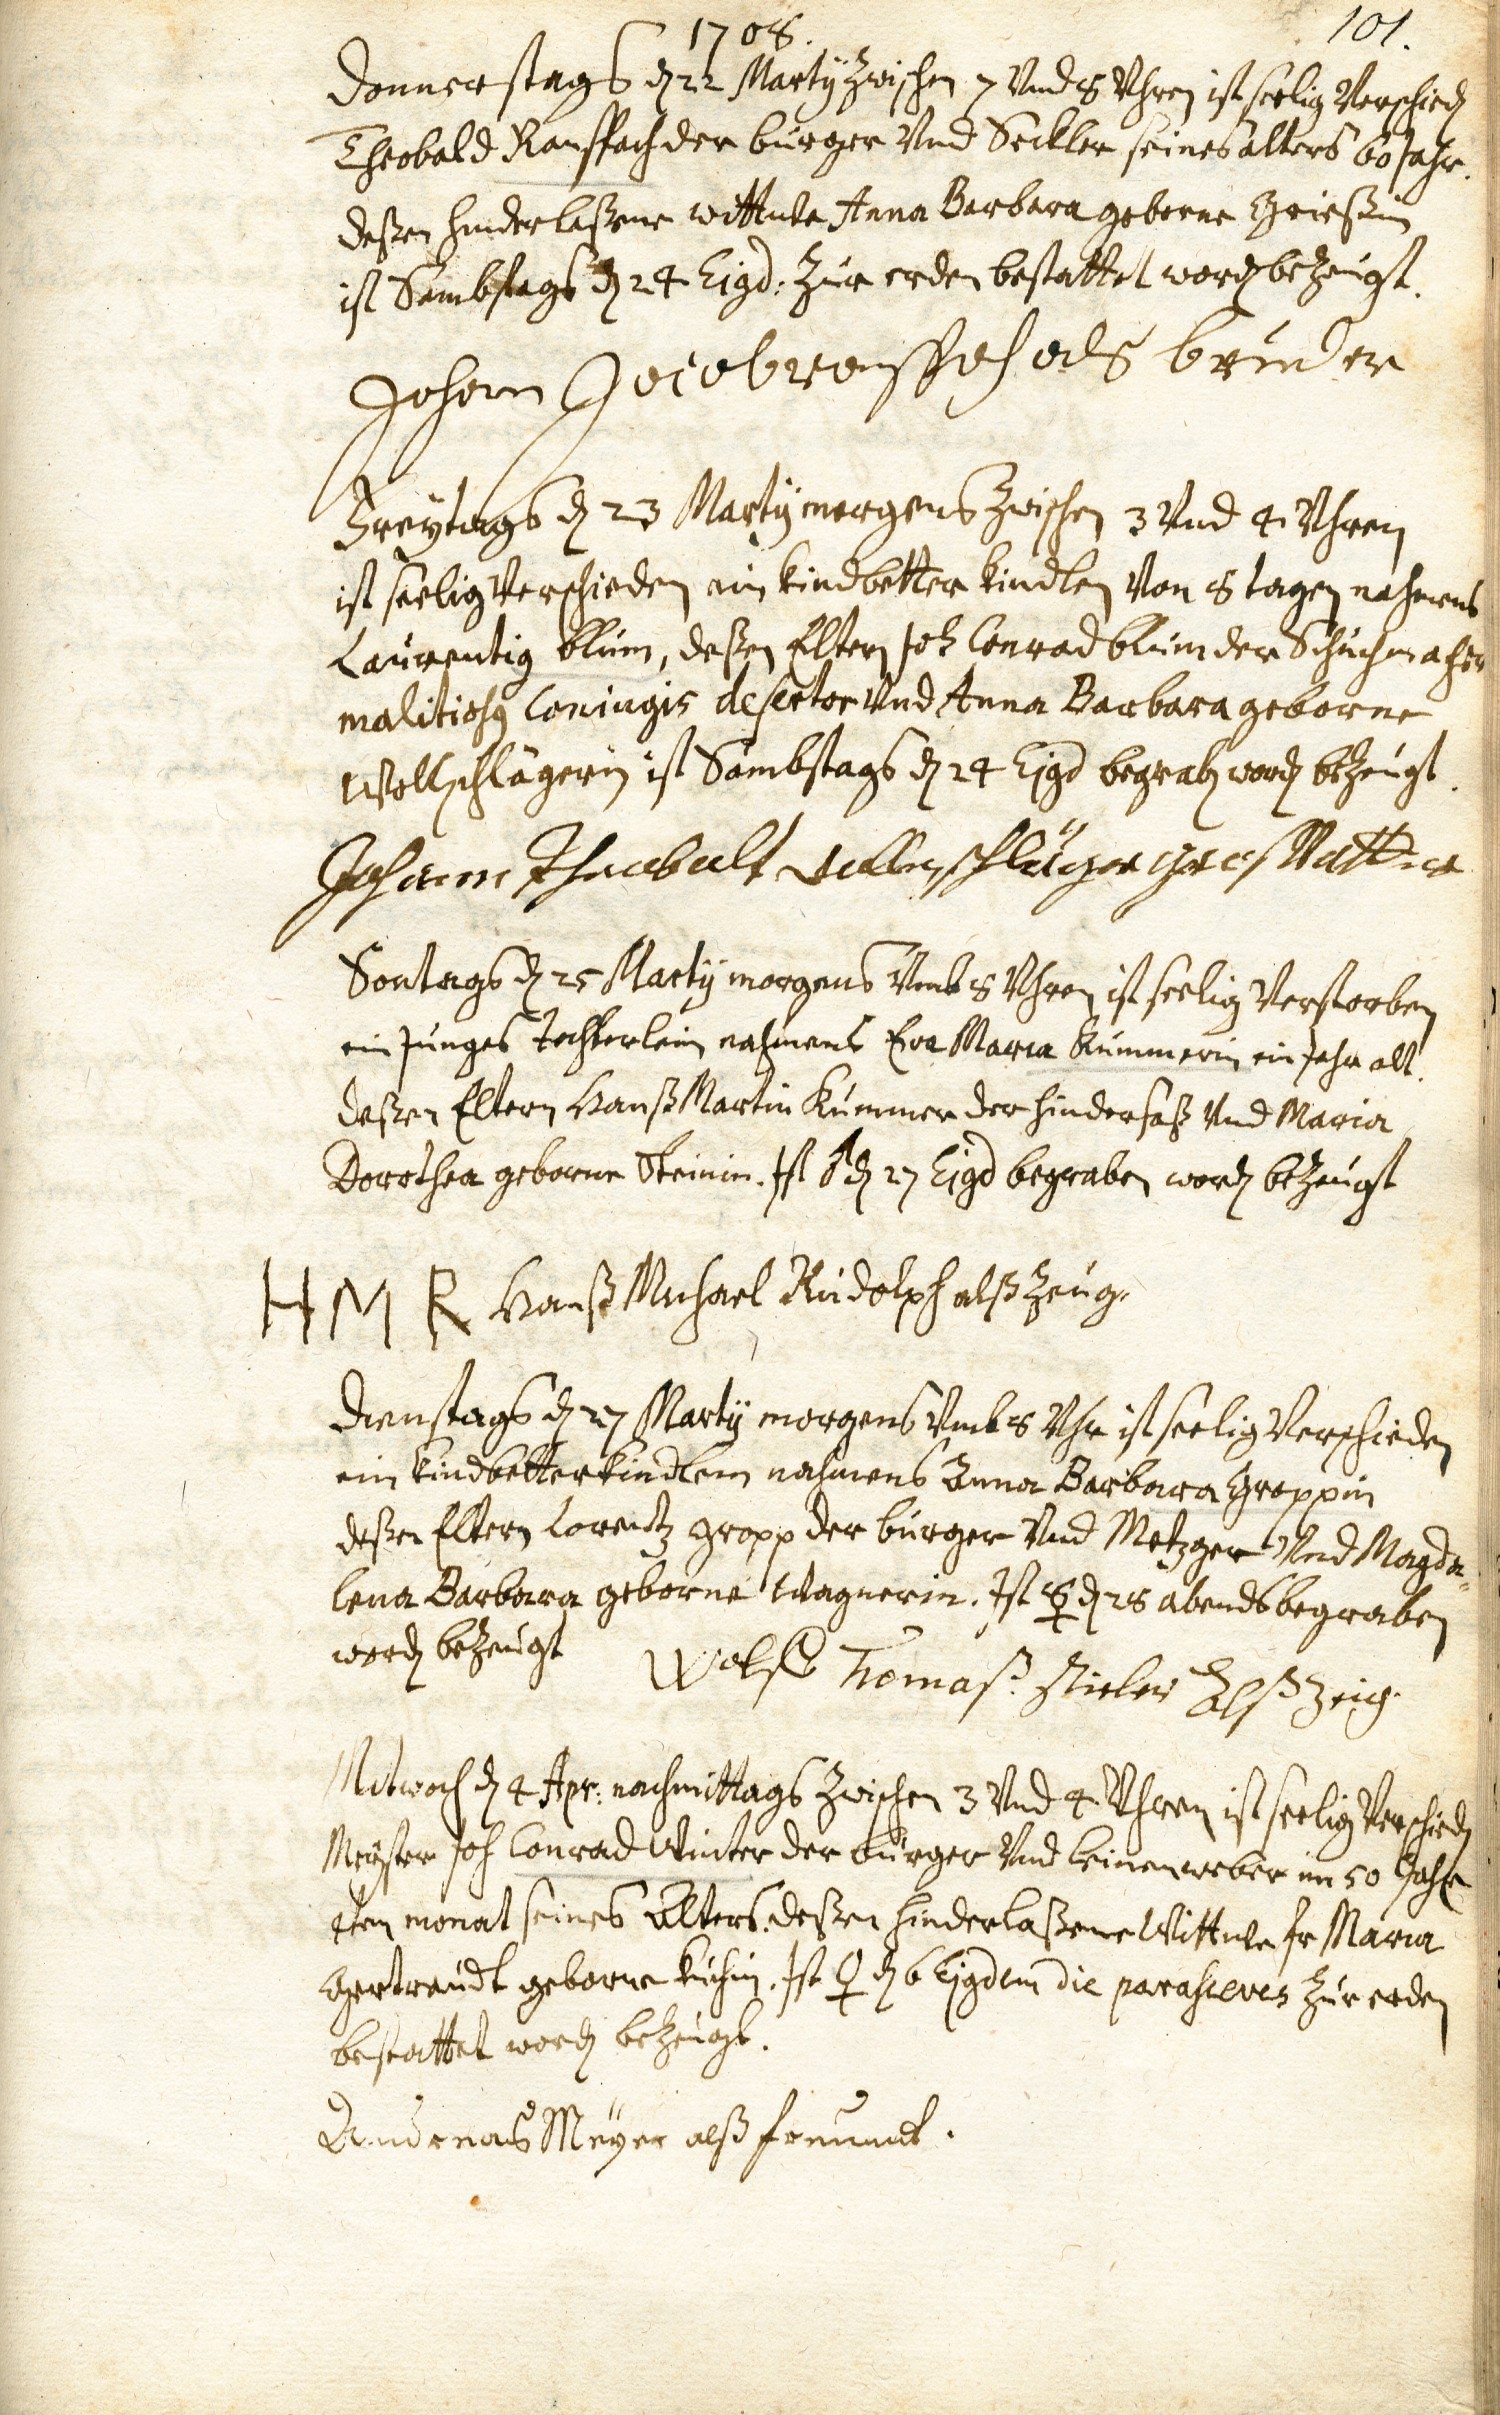 1708.
101.
Donnerstags d 22 Martÿ Zwischen 7 Vnd 8 Vhren ist seelig Verschied
Theobald Ranspach der burger Vnd Seckler seines alters 60 Jahr.
deßen hinderlaßene wittwe Anna Barbara geborne
ist Sambstags d 24 Ejgd: Zur erden bestattet word bezeugt.
Johann Jacob ranspach als bruder
Freytags d 23 Martÿ morgens Zwischen 3 Vnd 4 Vhren
ist seelig Verschieden ein kindbetter kindlen Von 8 tagen nahmens
Laurentig blum, deßen Eltern Joh Conrad blum der Schuchmacher
malitiosg Coniugis desertor Vnd Anna Barbara geborne
Wollschlägerin ist Sambstags d 24 Ejgd begrab word bezeugt.
Johann Theobalt wollenschläger gros Vatter
Sontags d 25 Martÿ morgens Vmb 8 Vhren ist seelig Verstorben
ein junges tochterlein nahmens Eva Maria Kummerin ein Jahr alt.
deßen Eltern Hanß Martin Kummer der hindersaß Vnd Maria
Dorothea geborne Steinin. Ist ♂ d 27 Ejgd begraben word bezeugt
H M R Hanß Michael Rudolph alß Zeug.
Dienstags d 27 Martÿ morgens Vmb 8 Vhr ist seelig Verschieden
ein kindbetterkindlein nahmens Anna Barbara Groppin
deßen Eltern Lorentz Gropp der burger Vnd Metzger Vnd Magda=
lena Barbara geborne Wagnerin. Ist ☿ d 28 abends begraben
word bezeugt
Wolff Tomaß Alß Zeig.
Mitwoch d 4 Apr: nachmittags Zwischen 3 Vnd 4 Vhren ist seelig Verschied
Meister Joh Conrad Winter der burger Vnd leinenweber im 50 Jahr
monat seines Alters, deßen hinderlaßene Wittwe fr Maria
Gertraudt geborne. Ist ♀ d 6 Ejgdem die parasceves Zur erden
bestattet word bezeugt.
Andreas Meÿer alß freundt.